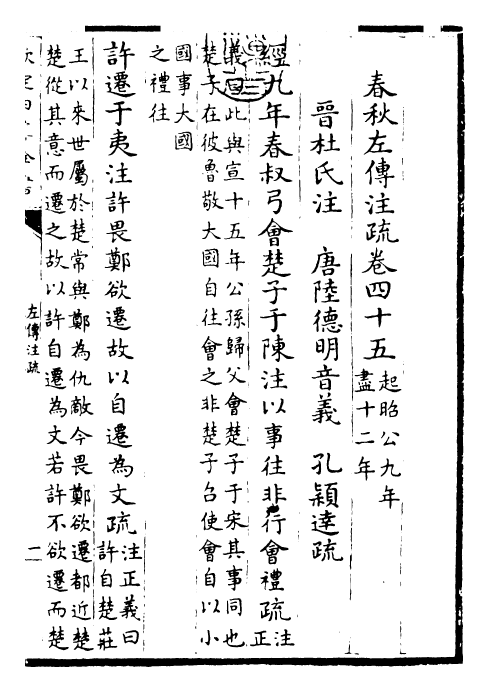 春秋左傳注疏卷四十五 起昭公九年
盡十二年
晉杜氏注 唐陸德明音義 孔穎達疏
經九年春叔弓會楚子于陳注以事往非行會禮疏注
正
義曰此與宣十五年公孫歸父會楚子于宋其事同也
楚子在彼魯敬大國自往會之非楚子召使會自以小
國事大國
之禮往
許遷于夷注許畏鄭欲遷故以自遷為文疏注正義曰
許自楚莊
王以來世屬於楚常與鄭為仇敵今畏鄭欲遷都近楚
楚從其意而遷之故以許自遷為文若許不欲遷而楚
左傳注疏
一